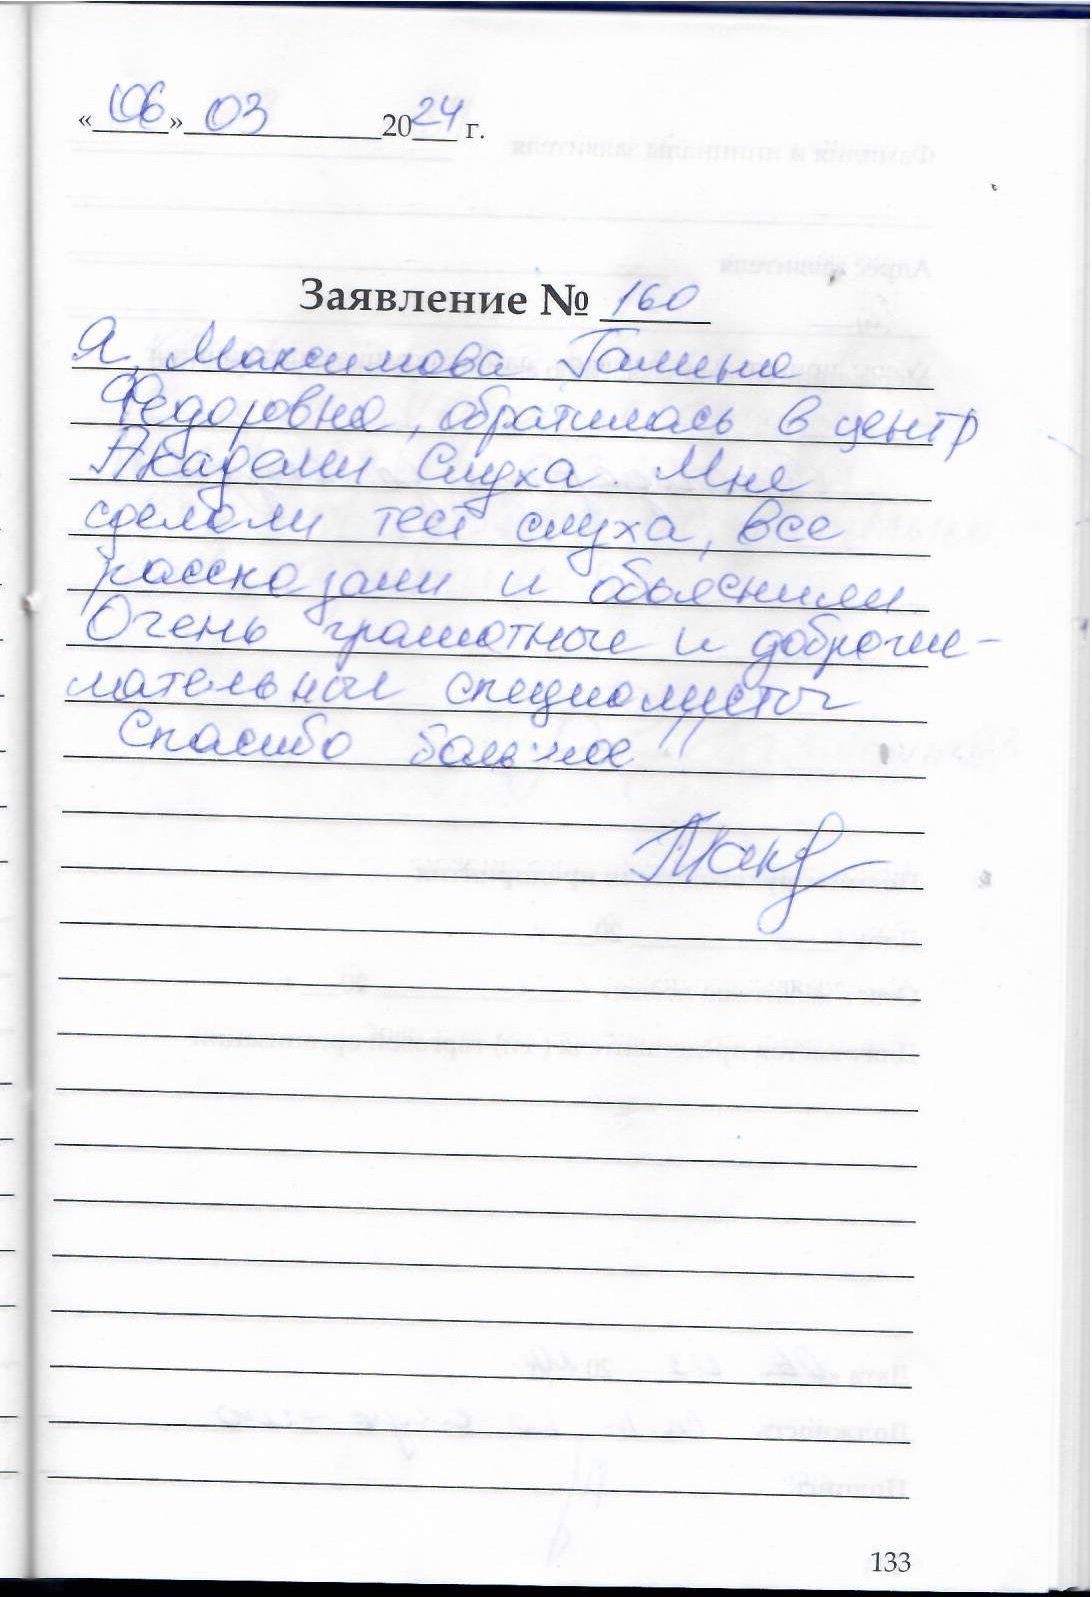 «06» 03 2024 г.
Заявление № 160
Я, Максимова Галина
Федоровна, обратилась в центр
Академи слуха. Мне
сделали тест слуха, все
рассказали и объяснили
Очень грамотные и доброже-
лательные специалисты
Спасибо большое!!
133